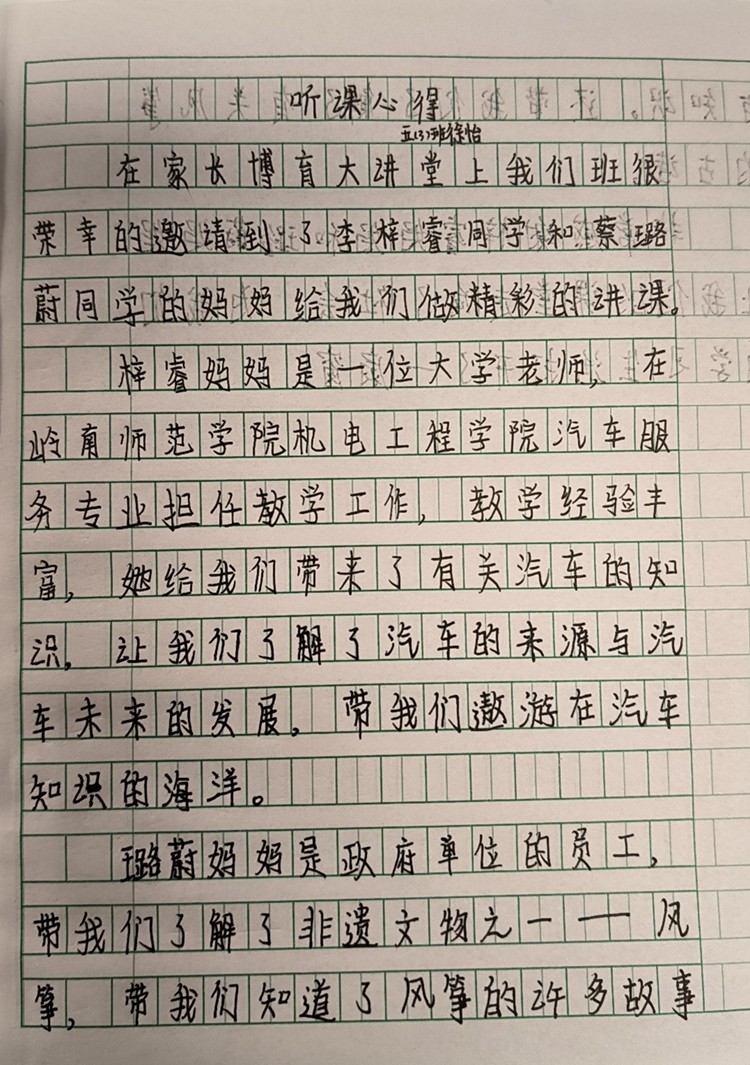 听课心得
五(3)班徐怡
在家长博育大讲堂上我们班很
荣幸的邀请到了李梓睿同学和蔡璐
蔚同学的妈妈给我们做精彩的讲课。
梓睿妈妈是一位大学老师，在
岭南师范学院机电工程学院汽车服
务专业担任教学工作，教学经验丰
富，她给我们带来了有关汽车的知
识，让我们了解了汽车的来源与汽
车未来的发展。带我们遨游在汽车
知识的海洋。
璐蔚妈妈是政府单位的员工，
带我们了解了非遗文物之一——风
筝，带我们知道了风筝的许多故事